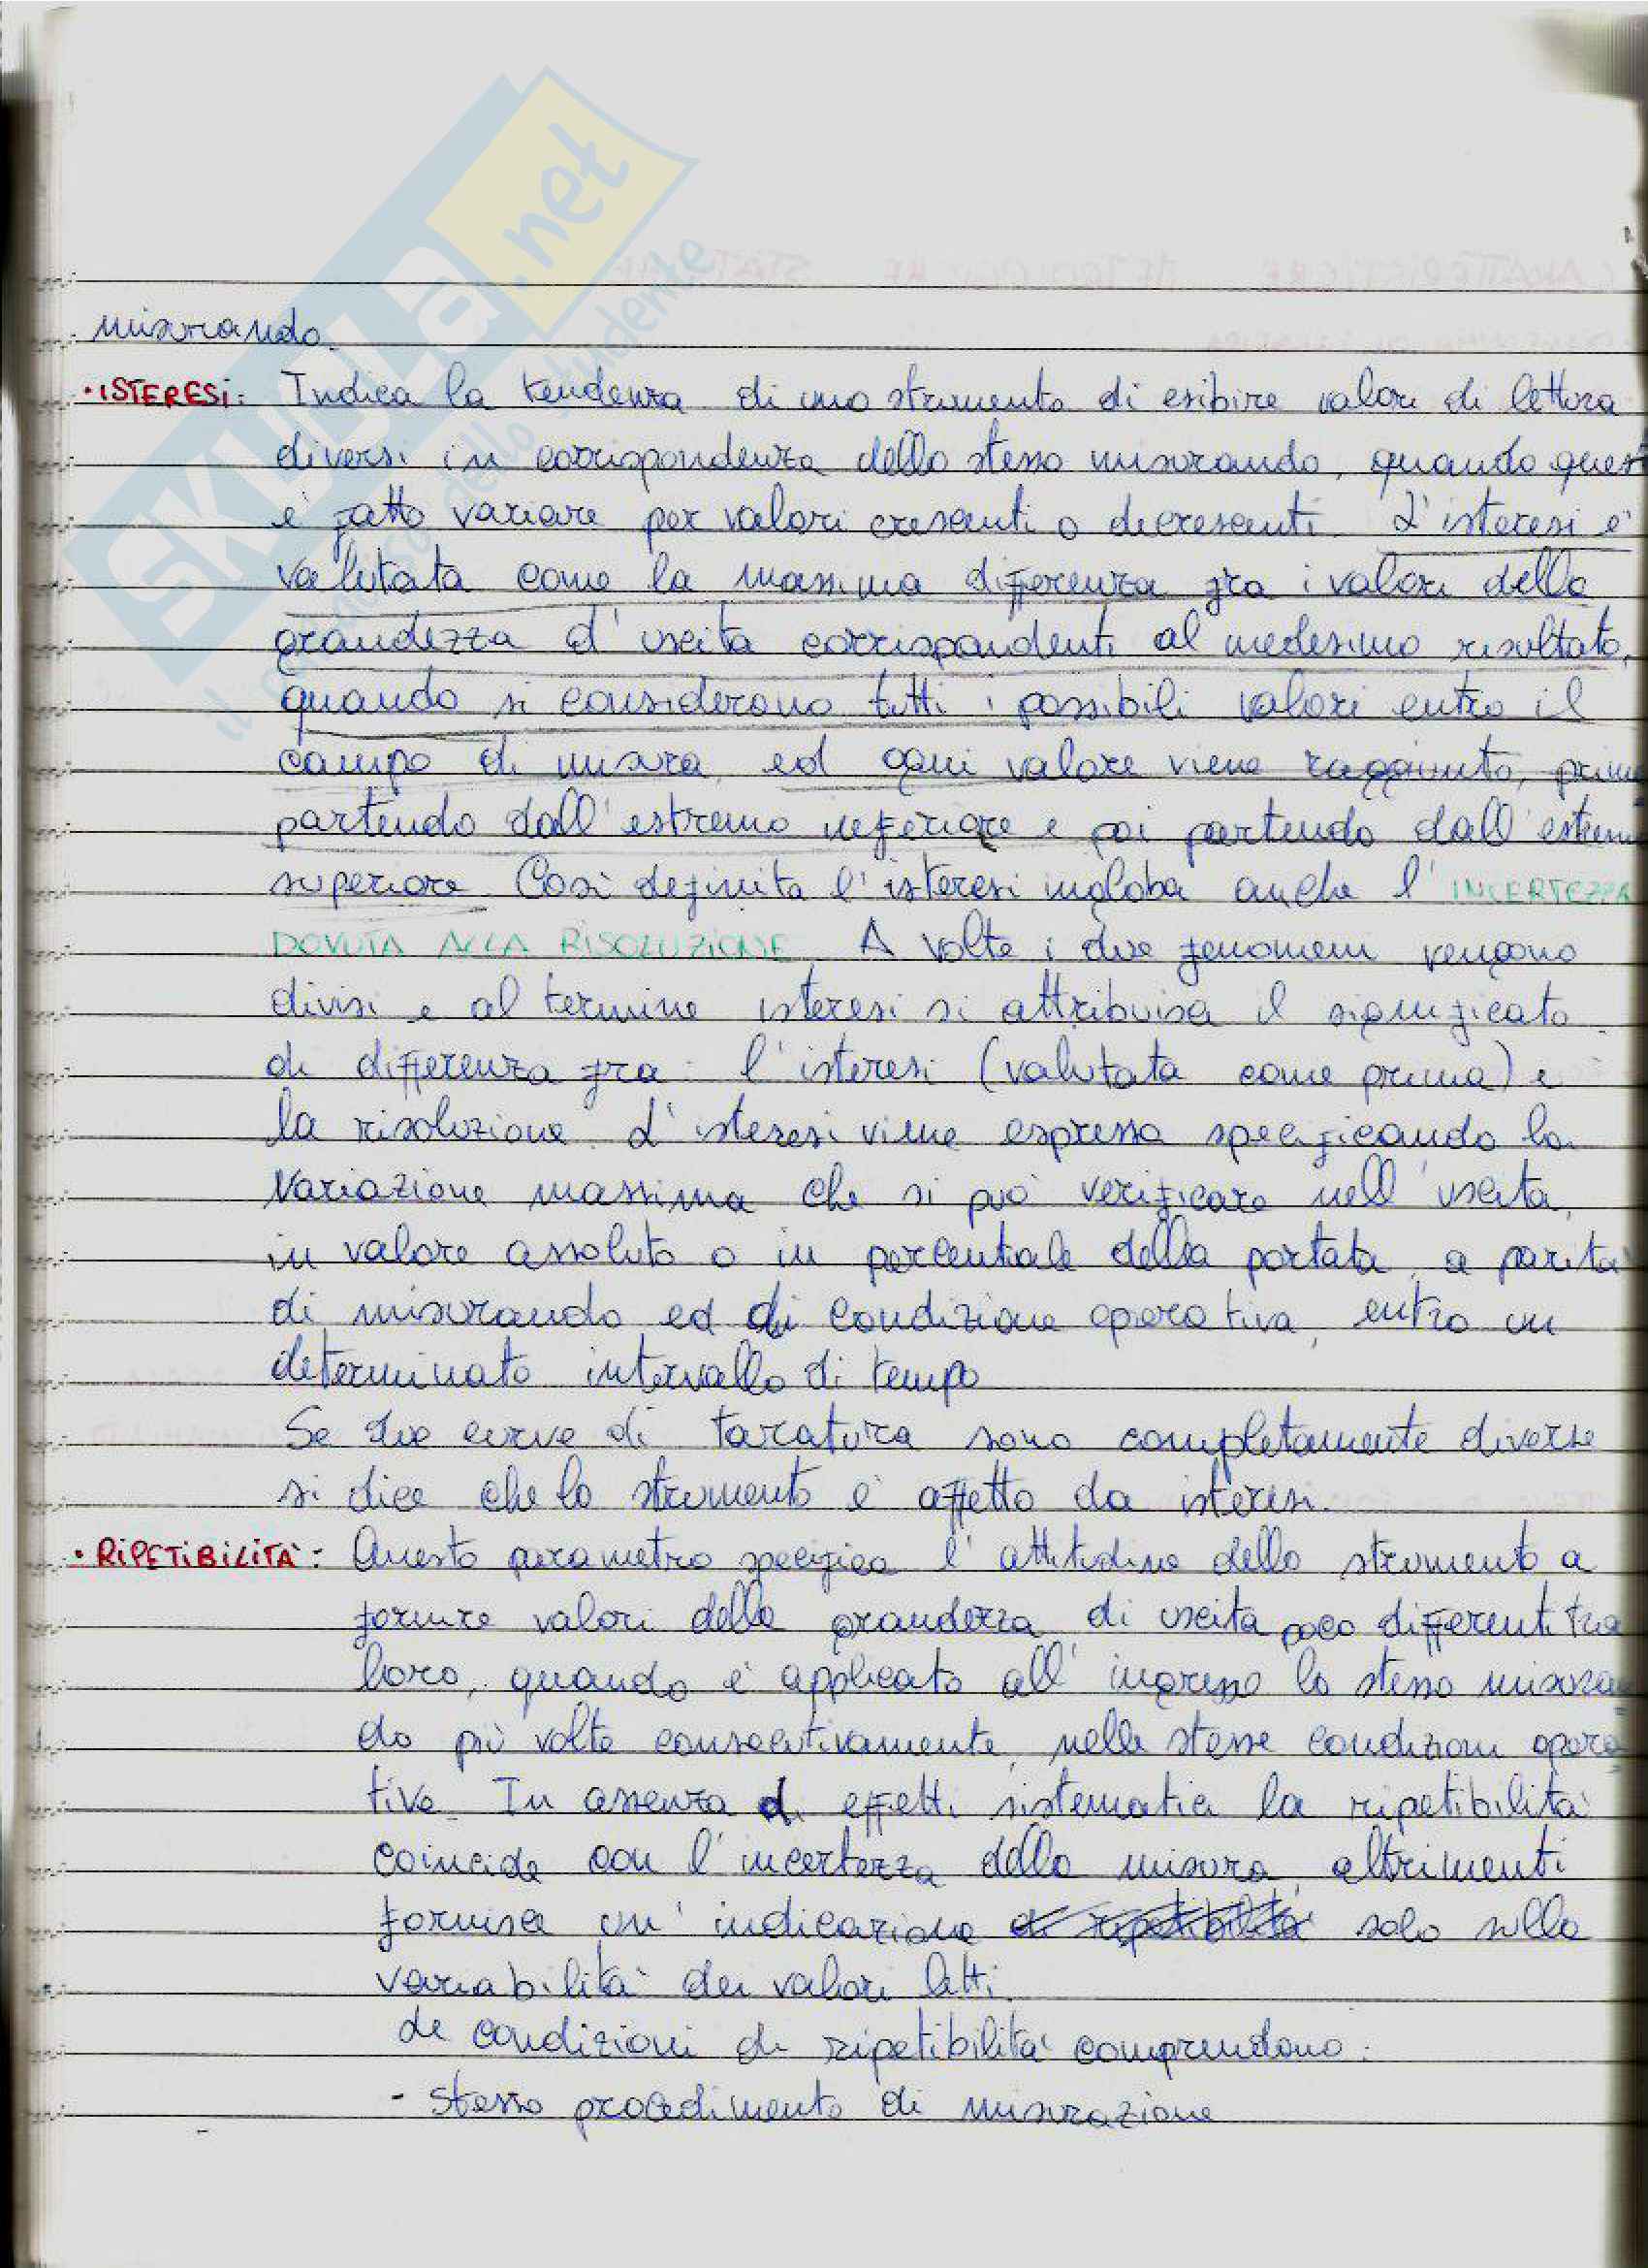 SKUOLA.net
il paradiso dello studente
misurando.
· ISTERESI: Indica la tendenza di uno strumento di esibire valori di lettura
diversi in corrispondenza dello stesso misurando, quando quest
e' fatto variare per valori crescenti o decrescenti. L'isteresi e'
valutata come la massima differenza fra i valori della
grandezza d'uscita corrispondenti al medesimo risultato,
quando si considerono tutti i possibili valori entro il
campo di misura, ed ogni valore viene raggiunto, prima
partendo dall'estremo inferiore e poi partendo dall'estremo
superiore. Così definita l'isteresi ingloba anche l'INCERTEZZA
DOVUTA ALLA RISOLUZIONE. A volte i due fenomeni vengono
divisi e al termine isteresi si attribuisce il significato
di differenza fra: l'isteresi (valutata come prima) e
la risoluzione. L'isteresi viene espressa specificando la
variazione massima che si può verificare nell'uscita,
in valore assoluto o in percentuale della portata, a parita'
di misurando ed di condizione operativa, entro un
determinato intervallo di tempo
Se due curve di taratura sono completamente diverse
si dice che lo strumento e' affetto da isteresi.
· RIPETIBILITA': Questo parametro specifica l'attitudine dello strumento a
fornire valori della grandezza di uscita poco differenti tra
loro, quando e' applicato all'ingresso lo stesso misuran
do più volte consecutivamente, nelle stesse condizioni opera
tive. In assenza di effetti sistematici la ripetibilita'
coincide con l'incertezza della misura, altrimenti
fornisce un'indicazione di ripetibilita' solo sulla
variabilita' dei valori letti.
Le condizioni di ripetibilita' comprendono:
- stesso procedimento di misurazione